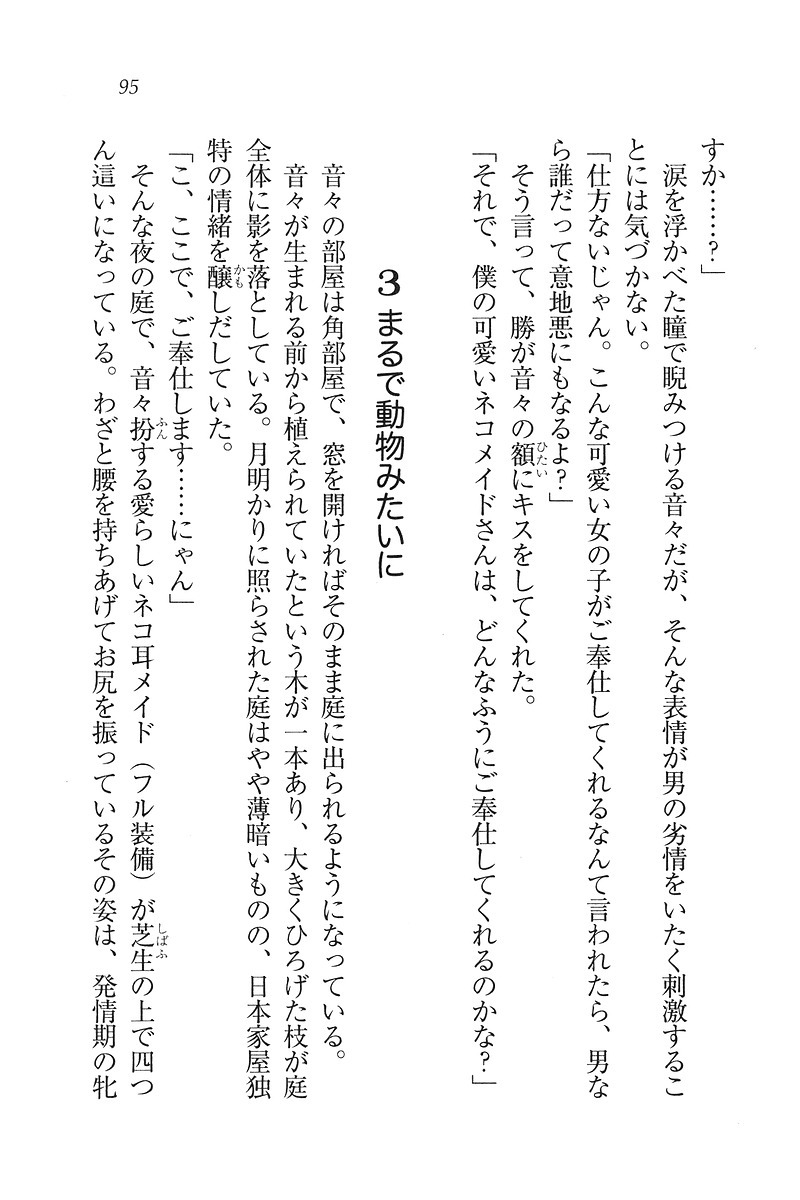 95
すか……？」
涙を浮かべた瞳で睨みつける音々だが、そんな表情が男の劣情をいたく刺激するこ
とには気づかない。
「仕方ないじゃん。こんな可愛い女の子がご奉仕してくれるなんて言われたら、男な
ら誰だって意地悪にもなるよ？」
ひたい
そう言って、勝が音々の額にキスをしてくれた。
「それで、僕の可愛いネコメイドさんは、どんなふうにご奉仕してくれるのかな？」
3 まるで動物みたいに
音々の部屋は角部屋で、窓を開ければそのまま庭に出られるようになっている。
音々が生まれる前から植えられていたという木が一本あり、大きくひろげた枝が庭
全体に影を落としている。月明かりに照らされた庭はやや薄暗いものの、日本家屋独
かも
特の情緒を醸しだしていた。
「こ、ここで、ご奉仕します……にゃん」
ふん
しばふ
そんな夜の庭で、音々扮する愛らしいネコ耳メイド（フル装備）が芝生の上で四つ
ん這いになっている。わざと腰を持ちあげてお尻を振っているその姿は、発情期の牝